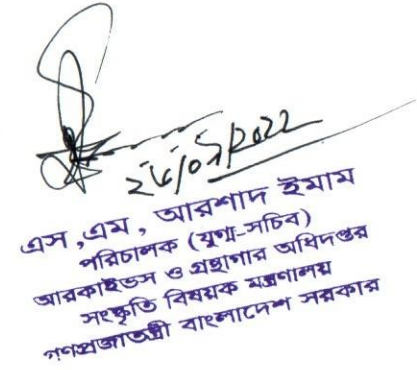 এস,এম, আরশাদ ইমাম
পরিচালক (যুগ্ম-সচিব)
আরকাইভস ও গ্রন্থাগার অধিদপ্তর
সংস্কৃতি বিষয়ক মন্ত্রণালয়
গণপ্রজাতন্ত্রী বাংলাদেশ সরকার